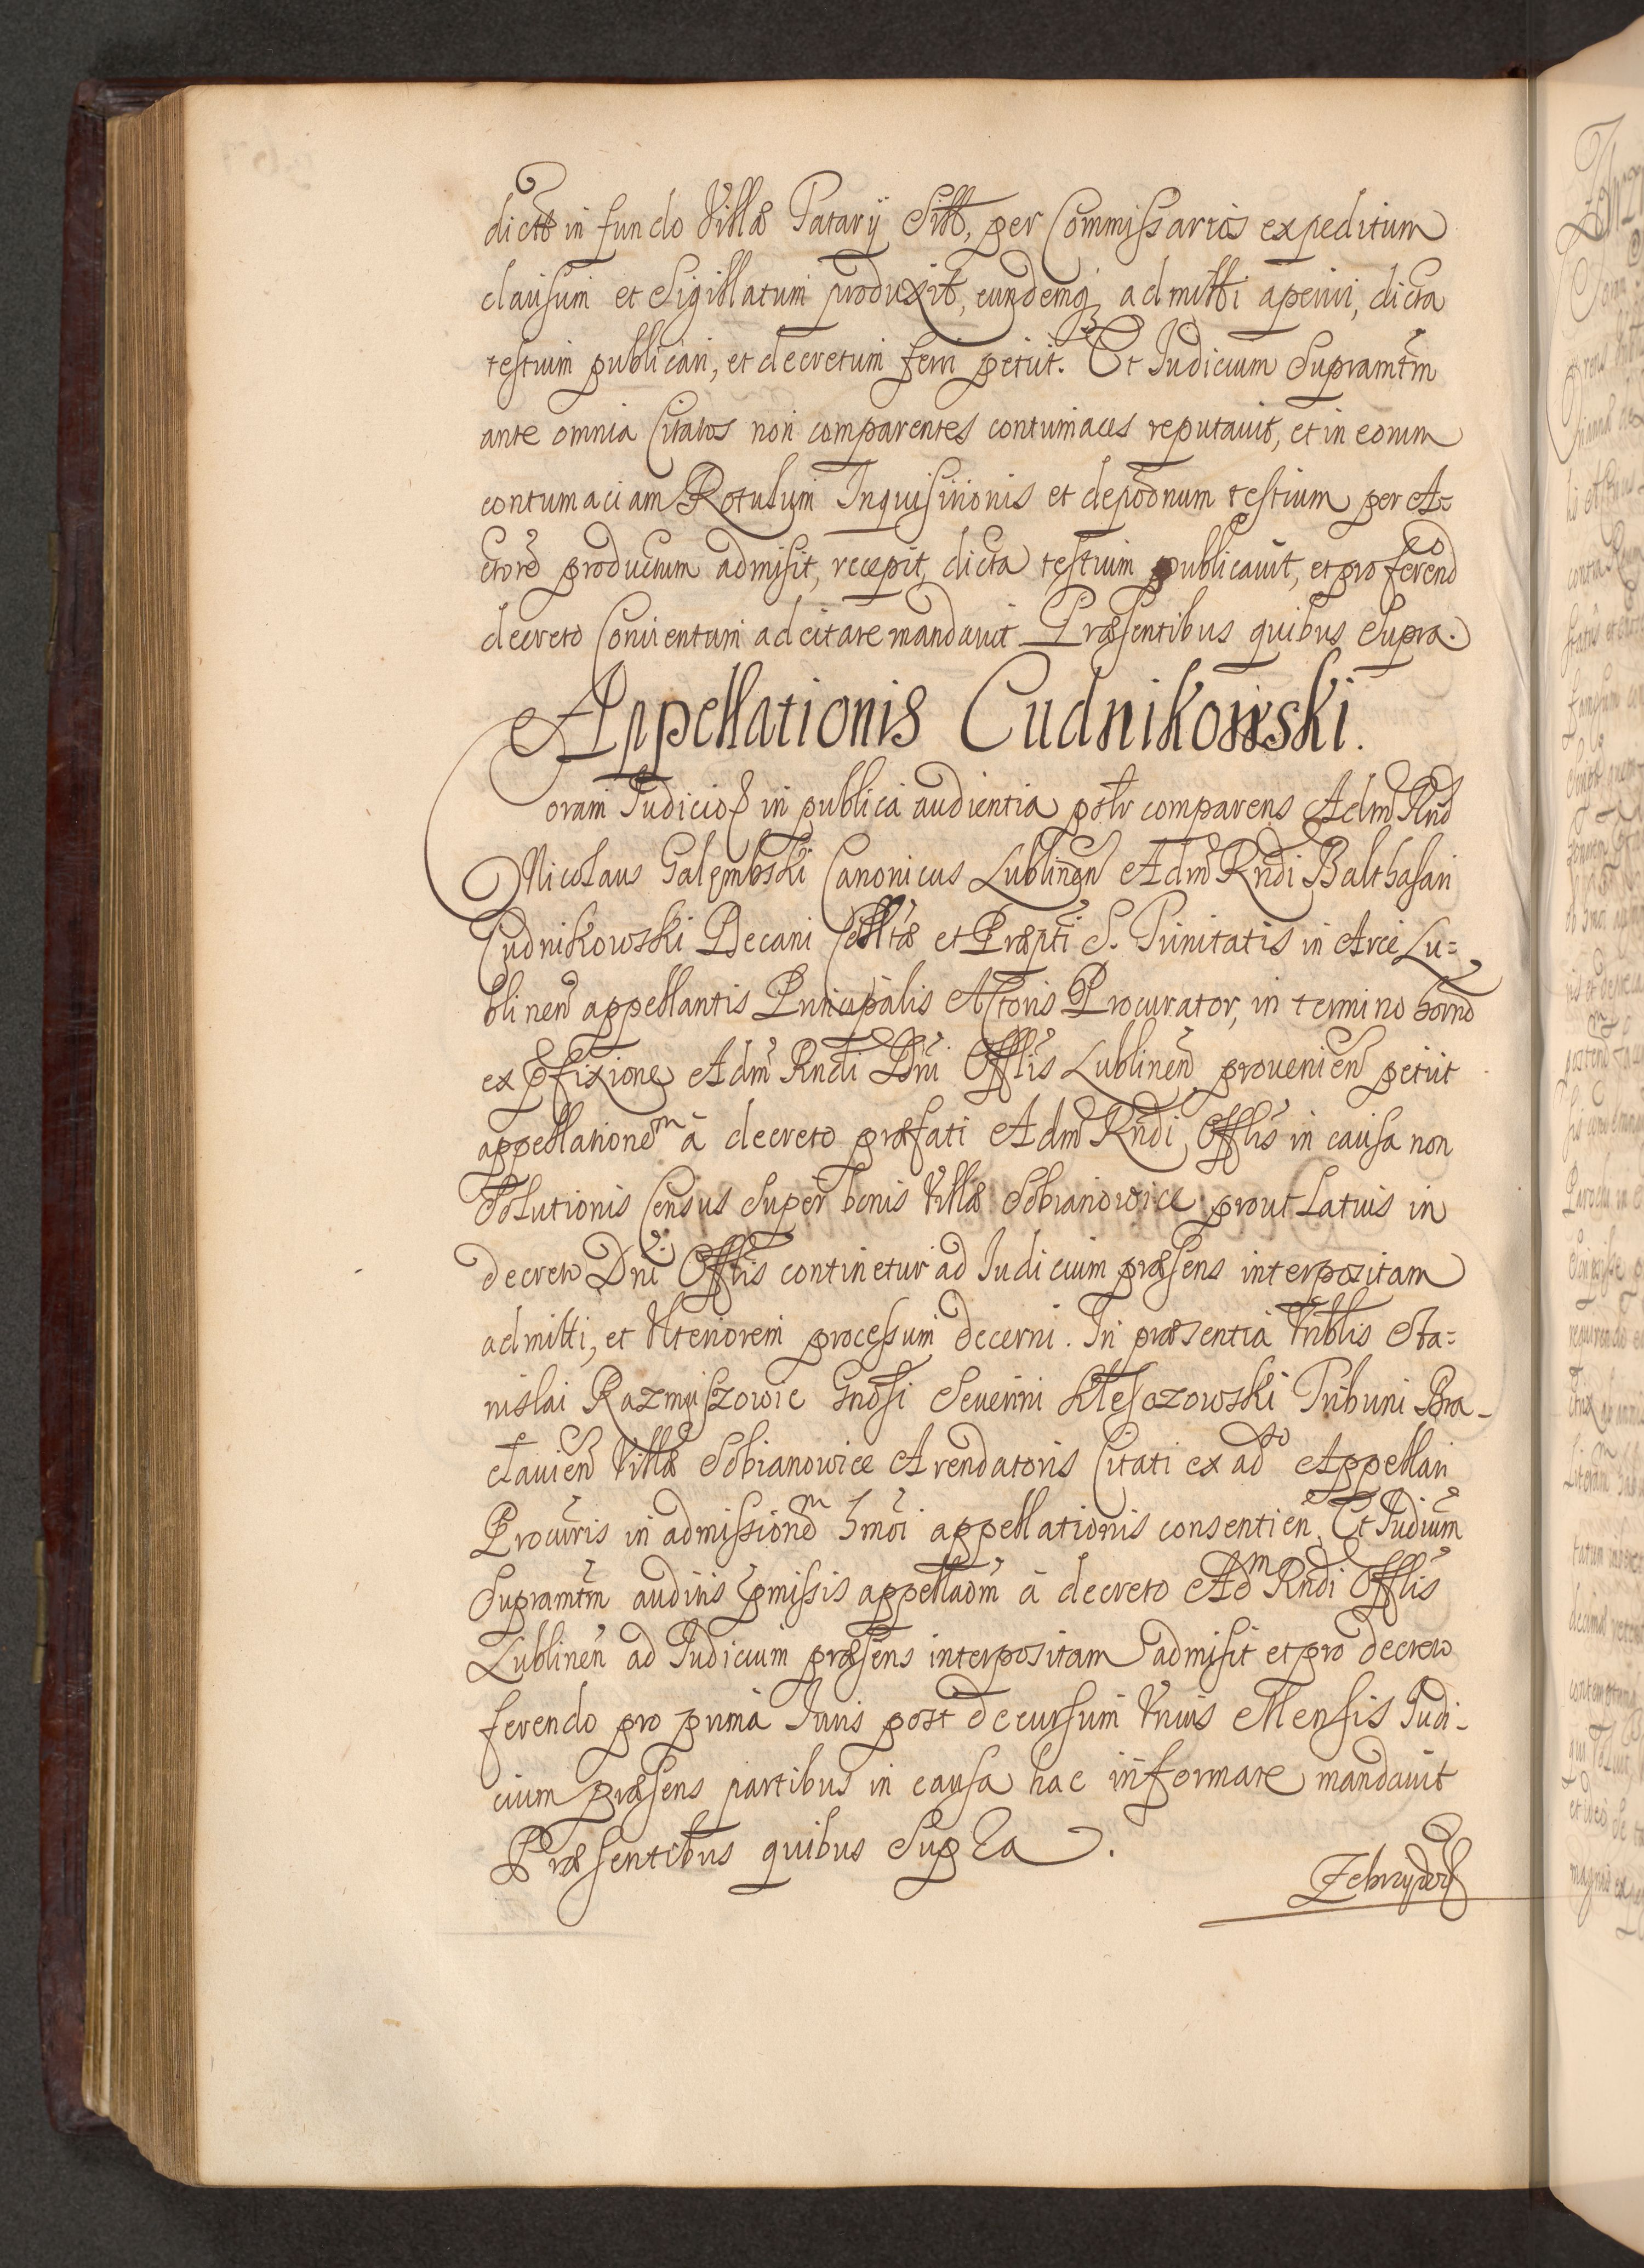 dicto in fundo Villæ Tatary Sitto, per Commissarios expeditum
clausum et Sigillatum produxit, eundemq3 admitti aperiri, dicta
testium publicari, et decretum ferri petiit. Et Iudicium Supramtm
ante omnia Citatos non comparentes contumaces reputauit, et in eorum
contumaciam Rotulum Inquisitionis et depoonum testium per A=
ctore productum admisit, recepit, dicta testium publicauit, et pro ferendo
decreto Conuentum ad citare mandauit Præsentibus quibus Supra.
Appellationis Cudnikowski.
Coram Iudicio in publica audientia comparens Adm Rnd
Nicolaus Galembski Canonicus Lublinen Adm Rndi Balthasari
Cudnikowski Decani et Præpti S. Trinitatis in Arce Lu=
blinen appellantis Principalis Actoris Procurator, in termino horno
ex pfixione Adm Rndi Dni Offlis Lublinen prouenien petiit
appellationem à decreto præfati Adm Rndi Offlis in causa non
Solutionis Census Super bonis Villæ Sobianowice prout Latius in
decreto Dni Offlis continetur ad Iudicium præsens interpositam
admitti, et Vlteriorem processum decerni. In præsentia Sta=
nislai Razmuszowic Gnosi Seuerini Tribuni Bra-
clauien Villæ Sobianowice Arendatoris Citati ex ado Appellari
Procuris in admissionem hmoi appellationis consentien. Et Iudium
Supramtm auditis pmissis appellaom à decreto Adm Rndi Offlis
Lublinen ad Iudicium præsens interpositam admisit et pro decreto
ferendo pro prima Iuris post decursum Vnius Mensis Iudi-
cium præsens partibus in causa hac informare mandauit
Præsentibus quibus Supra.